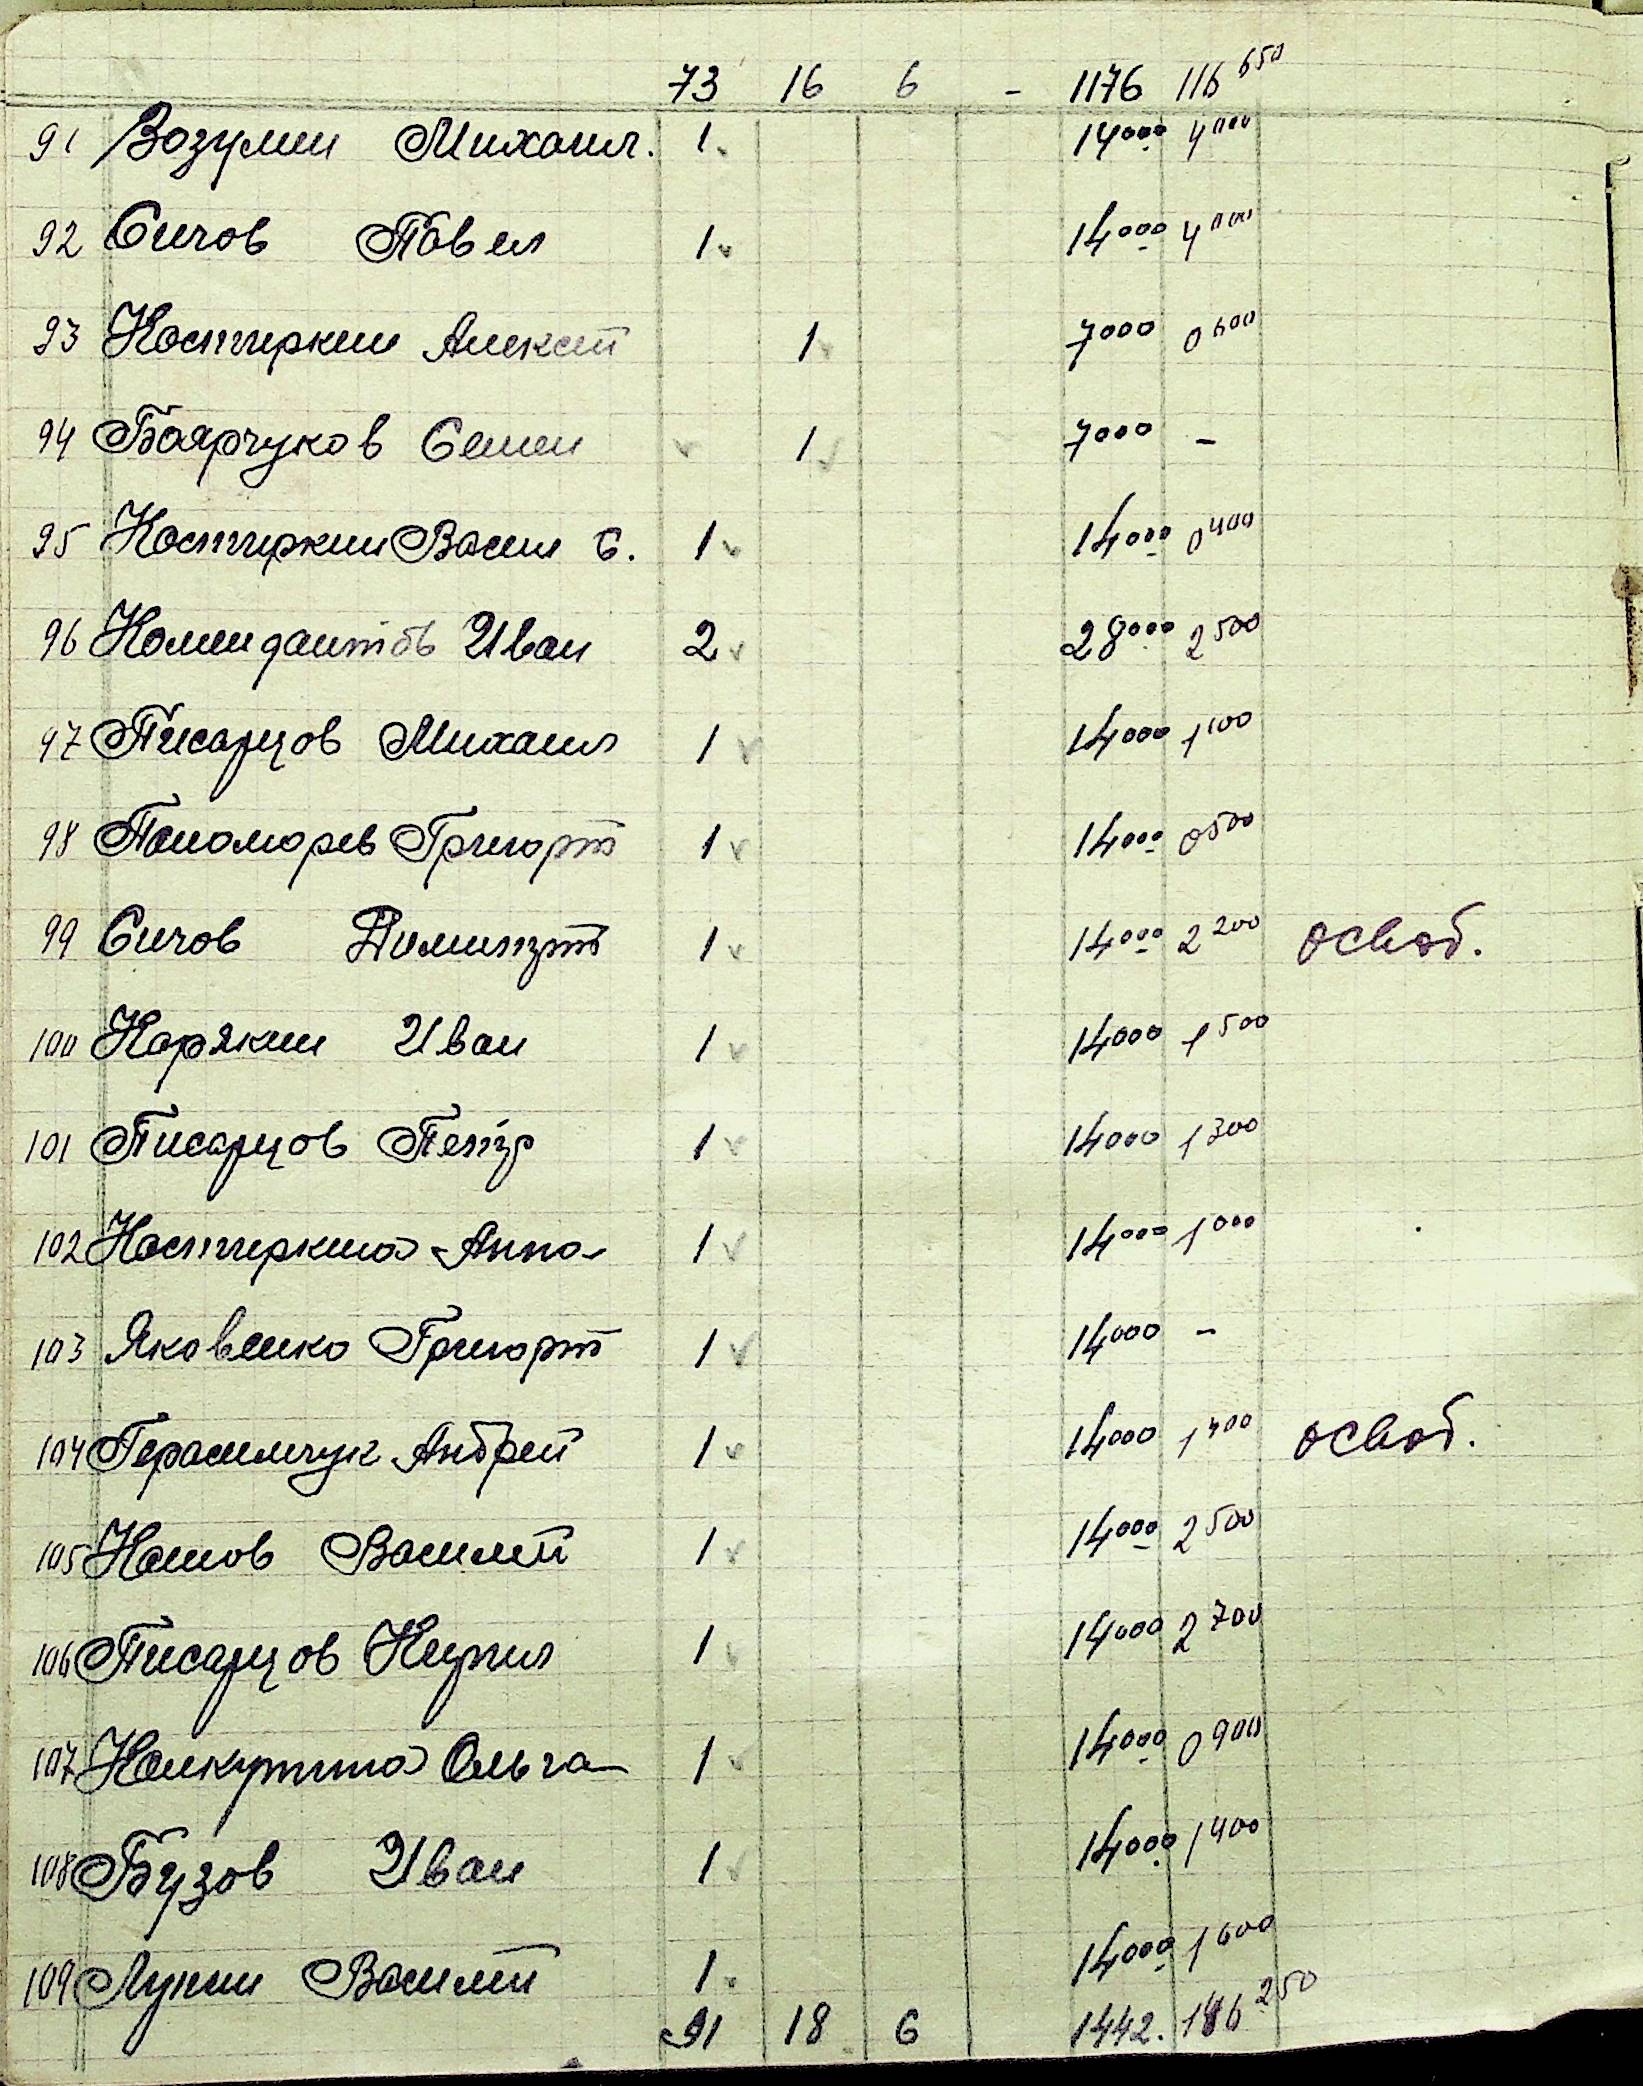 73 16 6 - 1176 116 650
91 Возумен Михаил. 1. 14000 4000
92 Сичов Павел 1 14000 4000
93 Костиркин Алексей 1 7000 0600
94 Боярчуков Семен 1 7000 -
95 Костиркин Васил С. 1 14000 0400
96 Комендантов Иван 2 28000 2500
97 Писарцов Михаил 1 14000 1100
98 Пономорев Григорий 1 14000 0500
99 Сичов Димитрий 1 14000 2200 освоб.
100 Корякин Иван 1 14000 1500
101 Писарцов Петр 1 14000 1300
102 Костиркина Анна 1 14000 1000
103 Яковенко Григорий 1 14000 -
104 Герасимчук Андрей 1 14000 1400 освоб.
105 Василий 1 14000 2500
106 Писарцов Кирил 1 14000 2700
107 Ольга 1 14000 0900
108 Бузов Иван 1 14000 1400
109 Лунин Василий 1. 14000 1600
91 18 6 1442. 250